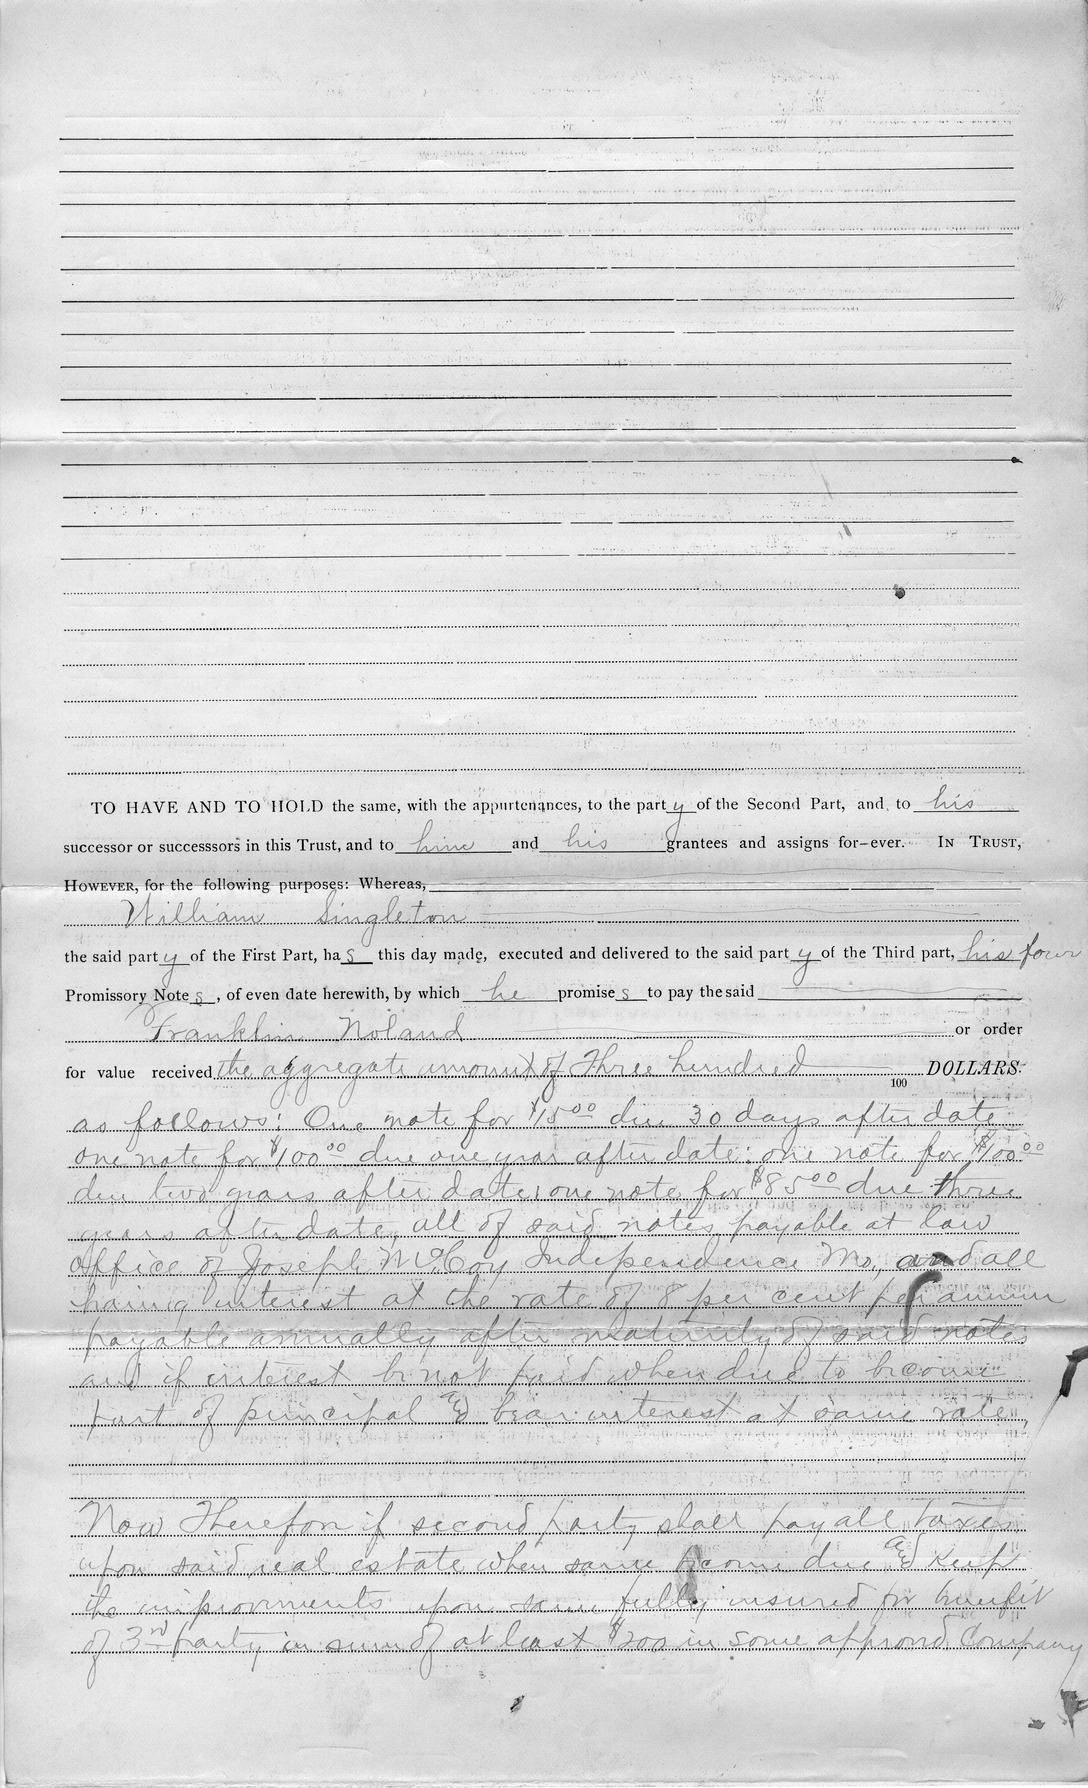 TO HAVE AND TO HOLD the same, with the appurtenances, to the party of the Second Part, and to his
successor or successsors in this Trust, and to him and his grantees and assigns for-ever. IN TRUST,
HOWEVER, for the following purposes: Whereas,
William Singleton
the said party of the First Part, has this day made, executed and delivered to the said party of the Third part, his four
Promissory Notes, of even date herewith, by which he promises to pay the said
Franklin Noland or order
for value received the aggregate amount of Three hundred 100 DOLLARS.
as follows: One note for $15 00 due 30 days after date
one note for $100 00 due one year after date: one note for $100 00
due two years after date; one note for $85 00 due three
years after date, all of said notes payable at law
office of Joseph McCoy Independence Mo., and all
having interest at the rate of 8 per cent per annum
payable annually after maturity of said notes
and if interest be not paid when due to become
part of principal and bear interest at same rate,
Now Therefore if second party shall pay all taxes
upon said real estate when same become due and keep
the improvments upon same fully insured for benefit
of 3rd party in sum of at least $200 in some approvd Company